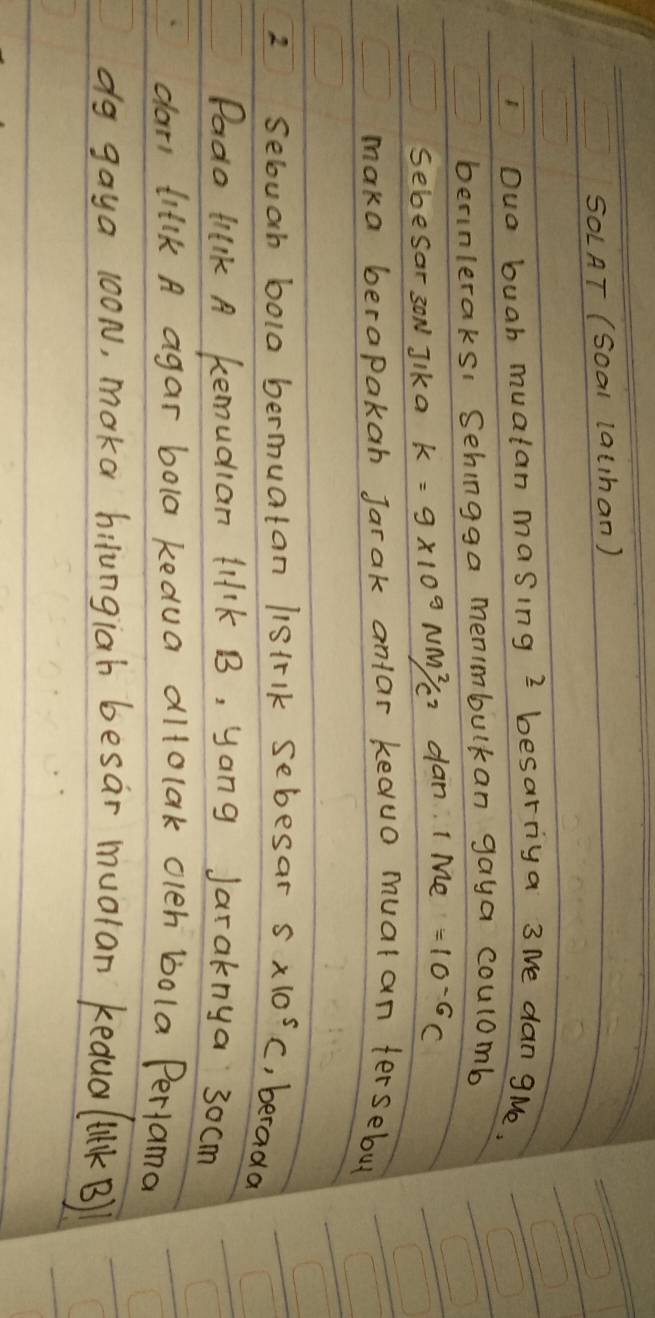 SOLAT (Soal latihan)
1 Dua buah muatan masing² besarnya 3 Me dan 9 Me.
berinteraksi sehingga menimbulkan gaya coulomb
Sebesar 30N Jika k = 9 x 10⁹ NM²/C² dan 1 Me = 10⁻⁶ C
maka berapakah Jarak antar kedua muatan tersebut
2 Sebuah bola bermuatan listrik sebesar 5 x 10⁵ C, berada
Pada titik A kemudian titik B, yang Jaraknya 30cm
dari titik A agar bola kedua ditolak oleh bola Pertama
dg gaya 100N, maka hitunglah besar muatan kedua (titik B)!